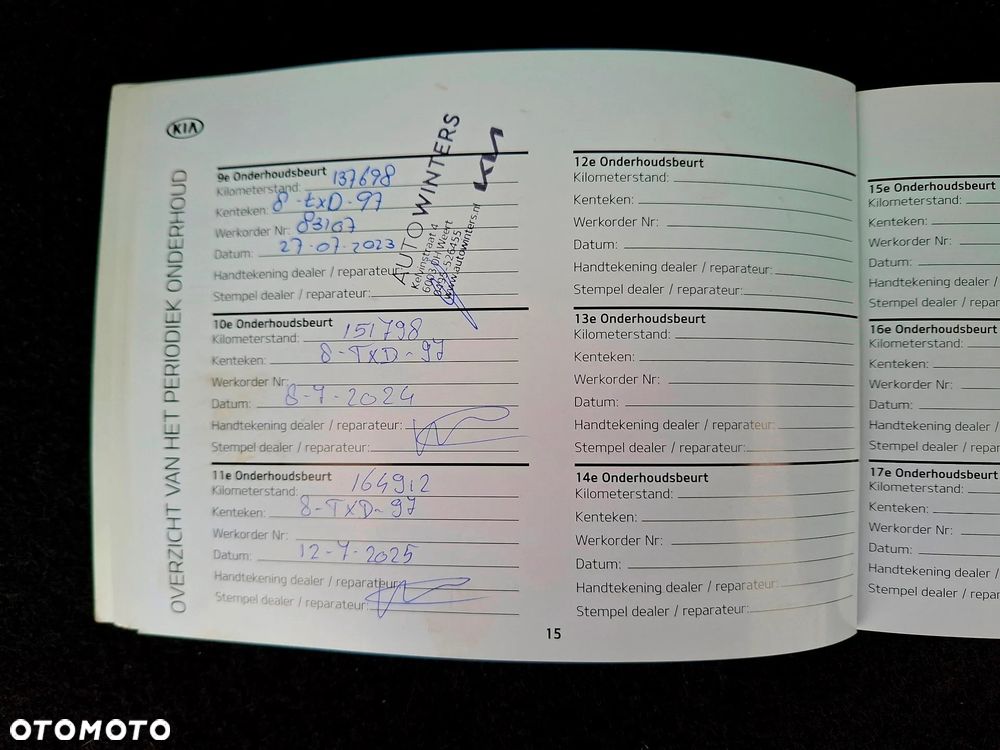 KIA
OVERZICHT VAN HET PERIODIEK ONDERHOUD
9e Onderhoudsbeurt
Kilometerstand: 137698
Kenteken: 8-txD-97
Werkorder Nr: 83107
Datum: 27-07-2023
Handtekening dealer / reparateur:
Stempel dealer / reparateur:
AUTO WINTERS
Kelvinstraat 4
6003 DH Weert
0495-526455
www.autowinters.nl
KIA
10e Onderhoudsbeurt
Kilometerstand: 151798
Kenteken: 8-TXD-97
Werkorder Nr:
Datum: 8-7-2024
Handtekening dealer / reparateur:
Stempel dealer / reparateur:
11e Onderhoudsbeurt
Kilometerstand: 164912
Kenteken: 8-TXD-97
Werkorder Nr:
Datum: 12-7-2025
Handtekening dealer / reparateur:
Stempel dealer / reparateur:
12e Onderhoudsbeurt
Kilometerstand:
Kenteken:
Werkorder Nr:
Datum:
Handtekening dealer / reparateur:
Stempel dealer / reparateur:
13e Onderhoudsbeurt
Kilometerstand:
Kenteken:
Werkorder Nr:
Datum:
Handtekening dealer / reparateur:
Stempel dealer / reparateur:
14e Onderhoudsbeurt
Kilometerstand:
Kenteken:
Werkorder Nr:
Datum:
Handtekening dealer / reparateur:
Stempel dealer / reparateur:
15
15e Onderhoudsbeurt
Kilometerstand:
Kenteken:
Werkorder Nr:
Datum:
Handtekening dealer /
Stempel dealer / repara
16e Onderhoudsbeurt
Kilometerstand:
Kenteken:
Werkorder Nr:
Datum:
Handtekening dealer /
Stempel dealer / repar
17e Onderhoudsbeurt
Kilometerstand:
Kenteken:
Werkorder Nr:
Datum:
Handtekening dealer /
Stempel dealer / repar
OTOMOTO